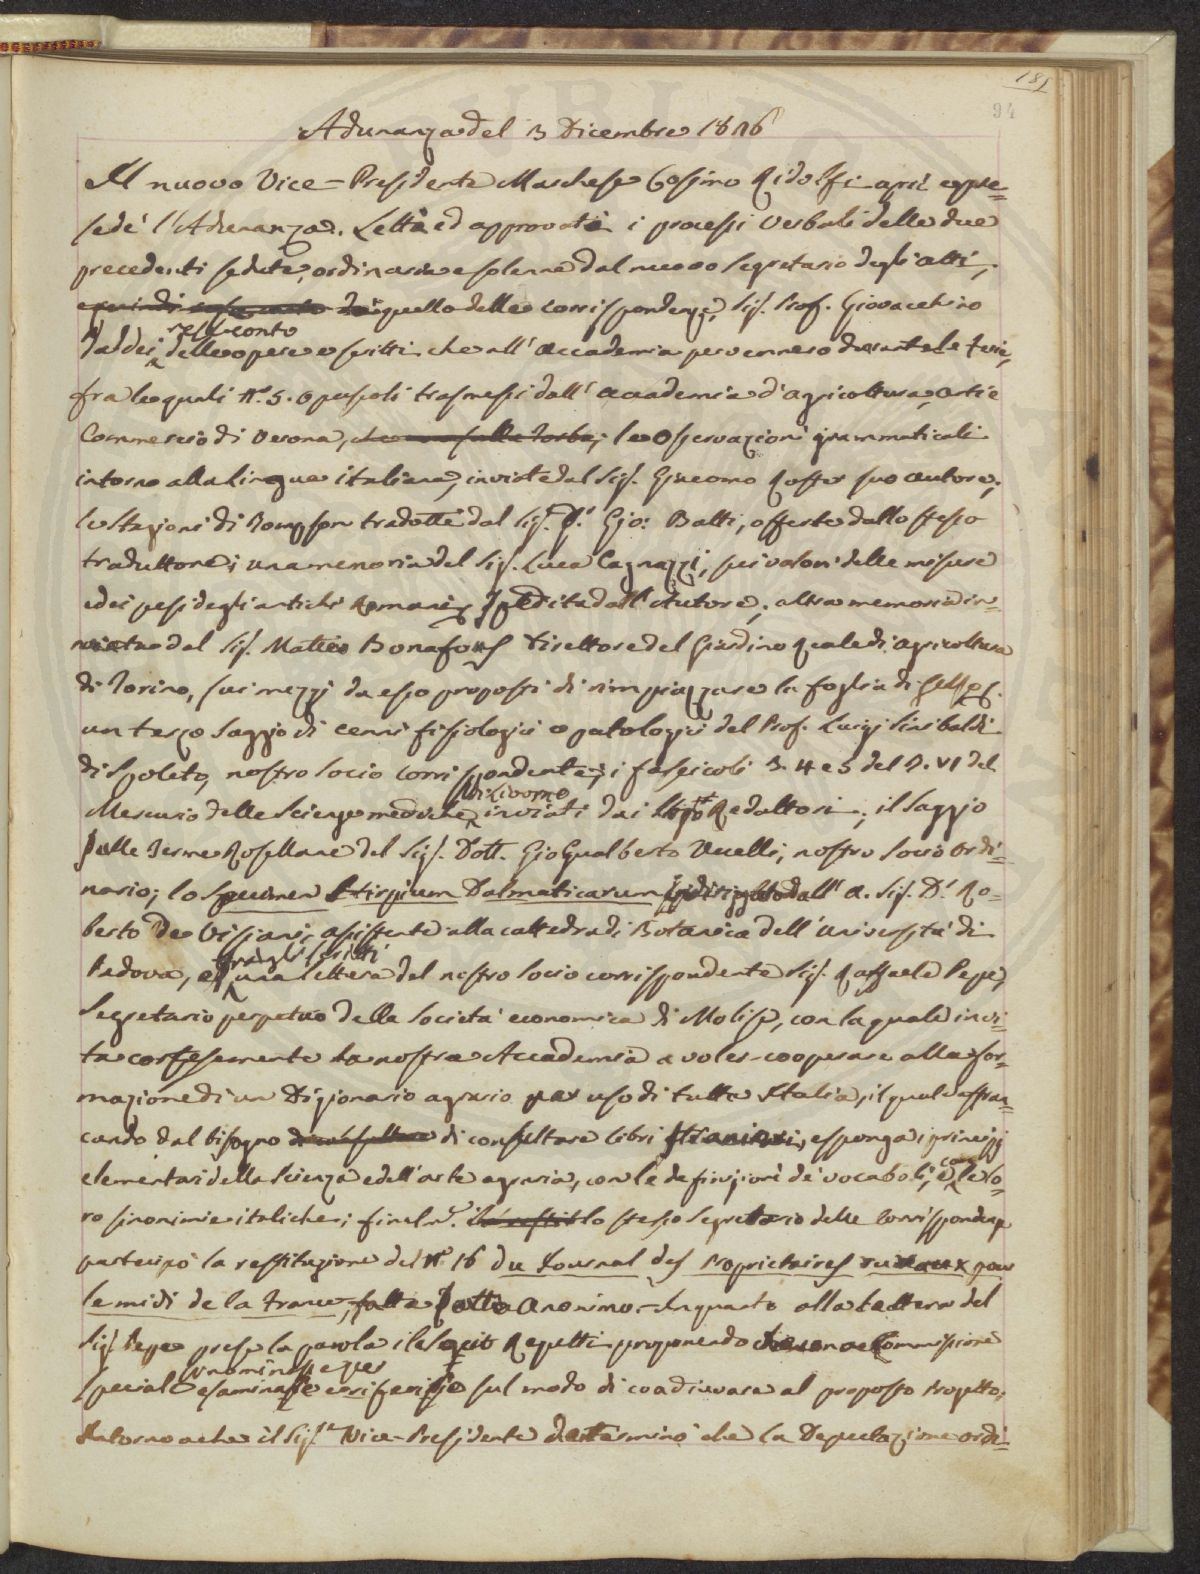 181
94
Adunanza del 3 Dicembre 1826
Il nuovo Vice-Presidente Marchese Cosimo Ridolfi aprì e pre=
sedé l'Adunanza. Letti ed approvati i processi verbali delle due
precedenti sedute, ordinaria e solenne dal nuovo Segretario degli atti,
e quindi da quello delle corrispondenze, Sig. Prof. Giovacchino
reso conto
Taddei, delle opere e scritti che all'Accademia pervennero durante le ferie,
fra le quali N.° 5. opuscoli trasmessi dall'Accademia d'agricoltura, arti e
Commercio di Verona, le Osservazioni grammaticali
intorno alla lingua italiana, inviate dal Sig. Giacomo Roster suo autore;
le Stagioni di Tompson tradotte dal Sig. D. Gio: Batti, offerte dallo stesso
traduttore; una memoria del Sig. Luca Cagnazzi, sui valori delle misure
e dei pesi degli antichi Romani, spedita dall'Autore; altra memoria in=
viata dal Sig. Matteo Bonafous Direttore del Giardino Reale di agricoltura
di Torino, sui mezzi da esso proposti di rimpiazzare la foglia di Gelsi;
un terzo saggio di cenni fisiologici e patologici del Prof. Luigi Sinibaldi
di Spoleto, nostro Socio corrispondente; i fascicoli 3. 4 e 5 del T. VI del
di Livorno
Mercurio delle Scienze mediche, inviati dai Redattori; il Saggio
sulle Terme Rosellane del Sig. Dott. Gio Gualberto Uccelli, nostro Socio ordi=
nario; lo specimen Stirpium Dalmaticarum dall'A. Sig. D. Ro=
berto De Visiani, assistente alla cattedra di Botanica dell'Università di
fra gli scritti
Padova, ed una lettera del nostro Socio corrispondente Sig. Raffaele Pepe,
Segretario perpetuo della Società economica di Molise, con la quale invi=
ta cortesemente la nostra Accademia a voler cooperare alla for=
mazione di un Dizionario agrario per uso di tutta Italia, il quale affran=
cando dal bisogno di consultare libri stranieri, esponga i principj
elementari della Scienza e dell'arte agraria, con le definizioni de' vocaboli, e con le lo=
ro sinonimie italiche; finalm.e lo stesso Segretario delle Corrispondenze
partecipò la restituzione del N.° 16 du Journal des Proprietaires ruraux pour
le midi de la France, fatta dall'Anonimo. In quanto alla Lettera del
Sig. Pepe prese la parola il Socio Repetti proponendo che una Commissione
si nominasse per
speciale esaminasse e riferisse sul modo di coadiuvare al proposto Progetto;
Intorno a che il Sig.r Vice-Presidente determinò che la Deputazione ordi=